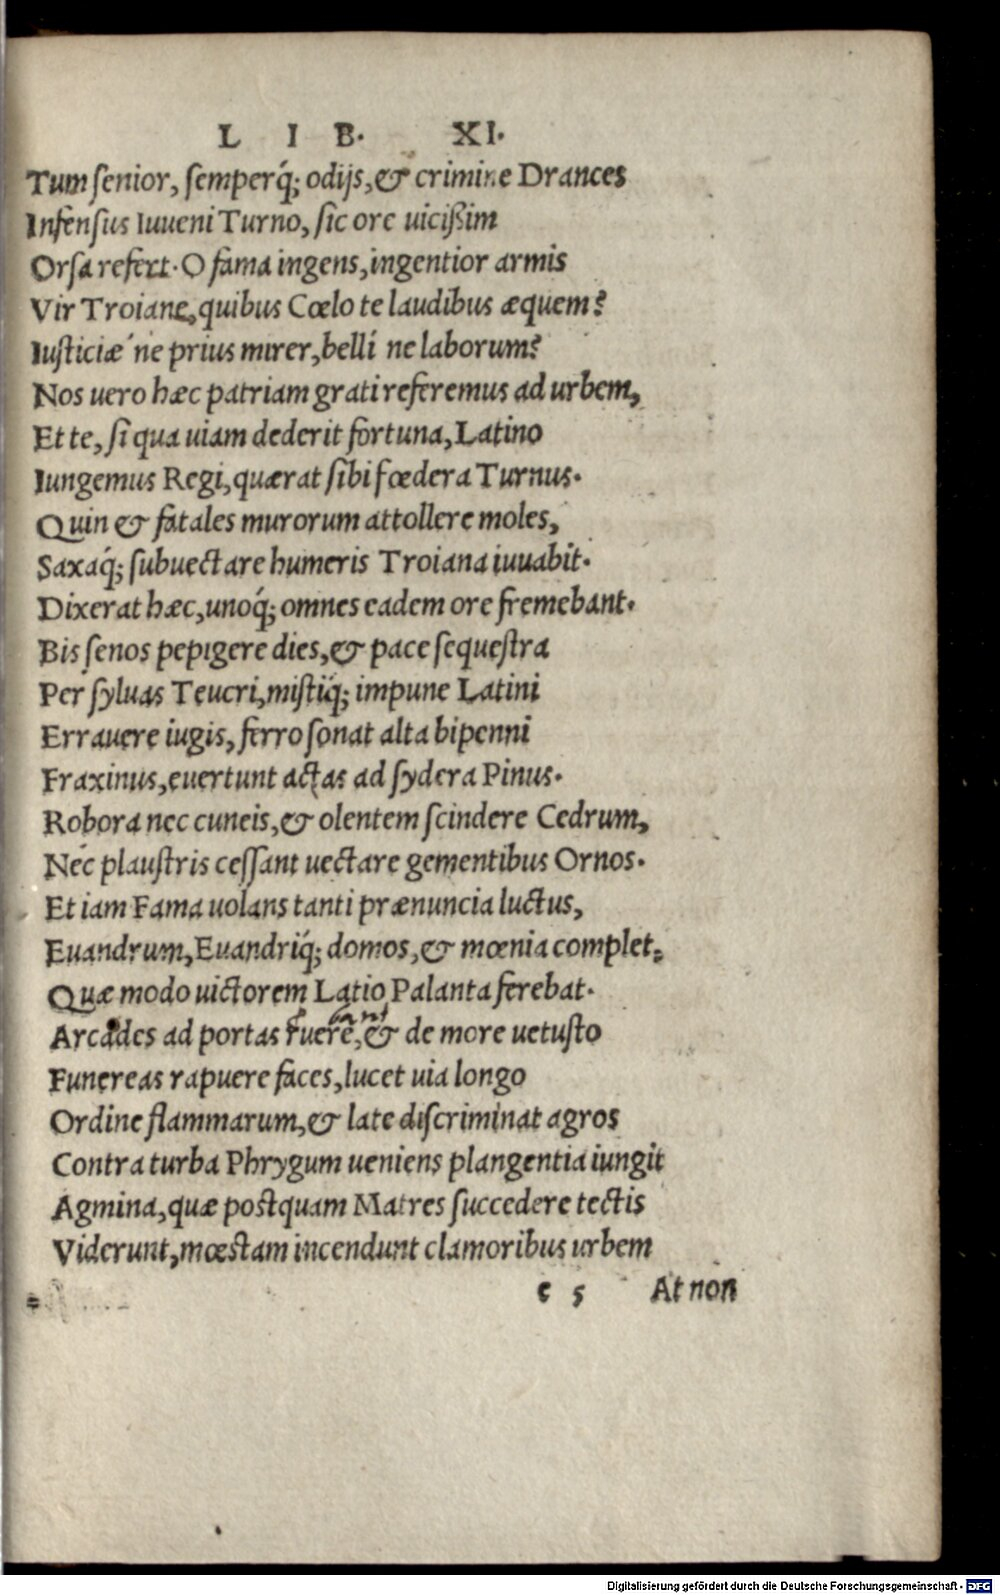 LIB. XI.
Tum senior, semperq́; odijs, & crimine Drances
Infensus Iuueni Turno, sic ore uicißim
Orsa refert. O fama ingens, ingentior armis
Vir Troiane, quibus Cœlo te laudibus æquem?
Iusticiæ ne prius mirer, belli ne laborum?
Nos uero hæc patriam grati referemus ad urbem,
Et te, si qua uiam dederit fortuna, Latino
Iungemus Regi, quærat sibi fœdera Turnus.
Quin & fatales murorum attollere moles,
Saxaq́; subuectare humeris Troiana iuuabit.
Dixerat hæc, unoq́; omnes eadem ore fremebant.
Bis senos pepigere dies, & pace sequestra
Per syluas Teucri, mistiq́; impune Latini
Errauere iugis, ferro sonat alta bipenni
Fraxinus, euertunt actas ad sydera Pinus.
Robora nec cuneis, & olentem scindere Cedrum,
Nec plaustris cessant uectare gementibus Ornos.
Et iam Fama uolans tanti prænuncia luctus,
Euandrum, Euandriq́; domos, & mœnia complet,
Quæ modo uictorem Latio Palanta ferebat.
Arcades ad portas ruere, & de more uetusto
Funereas rapuere faces, lucet uia longo
Ordine flammarum, & late discriminat agros
Contra turba Phrygum ueniens plangentia iungit
Agmina, quæ postquam Matres succedere tectis
Viderunt, mœstam incendunt clamoribus urbem
c 5 At non
Digitalisierung gefördert durch die Deutsche Forschungsgemeinschaft - DFG